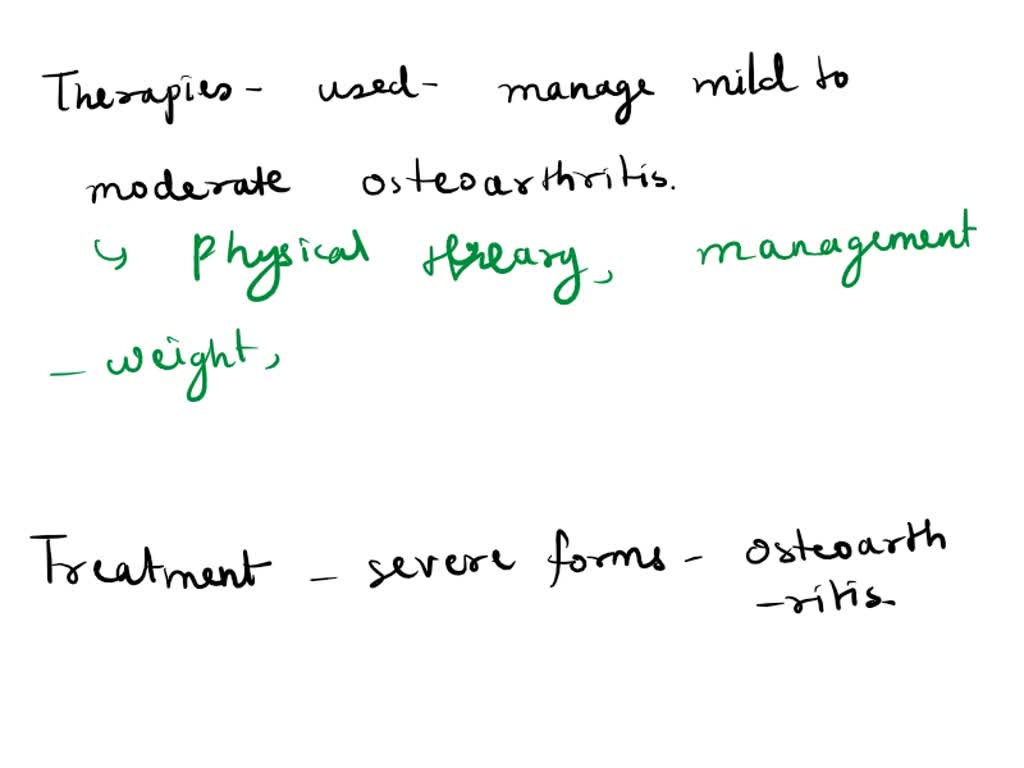 Therapies - used - manage mild to
moderate osteoarthritis.
↳ Physical thready, management
- weight,
Treatment - severe forms - osteoarth
-ritis.